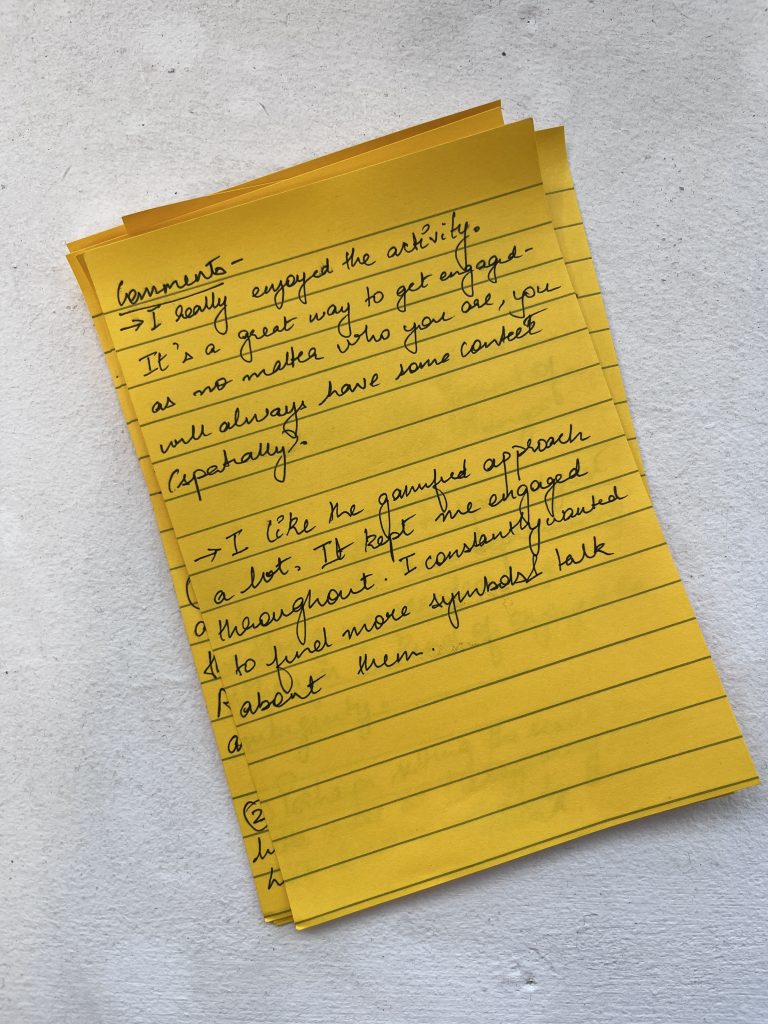 Comments -
→ I really enjoyed the activity.
It's a great way to get engaged -
as no matter who you are, you
will always have some context
(spatially).
→ I like the gamified approach
a lot. It kept me engaged
throughout. I constantly wanted
to find more symbols & talk
about them.
2